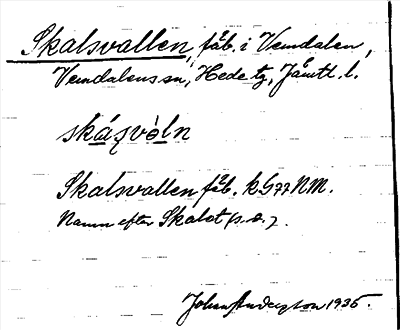 Skalsvallen, fäb. i Vemdalen,
Vemdalens sn, Hede tg, Jämtl. l.
skáʂvòln
Skalsvallen fäb. k G77NM.
Namn efter Skalet (s. d.).
Johan Anderzson 1935.